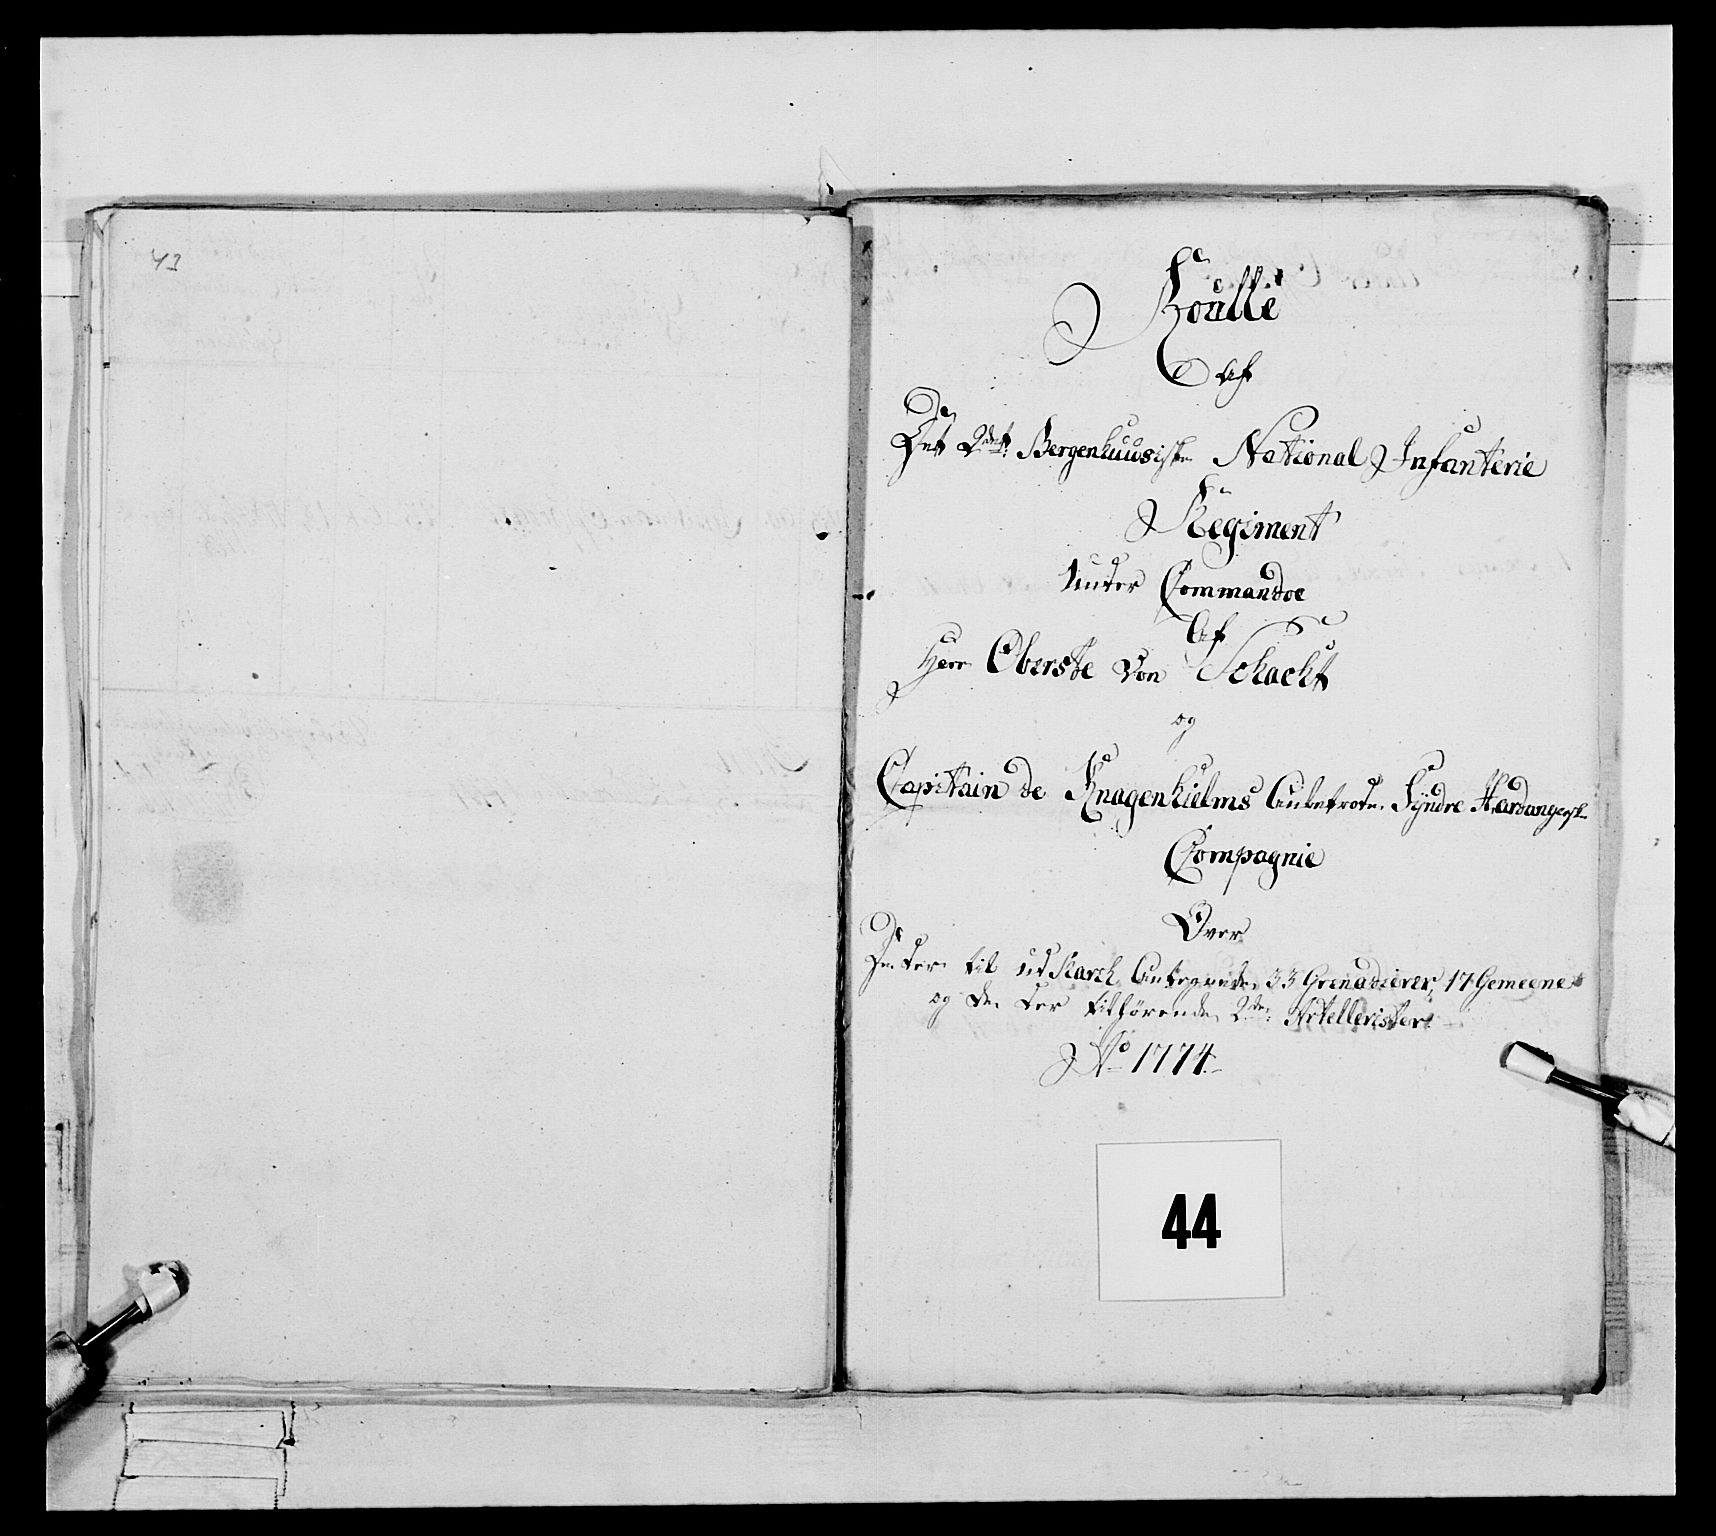 43
Roulle
af
Det 2det Bergenhuusiske National Infanterie
Regiment
Under Commandoe
Af
Herr Oberste von Schacht
og
Capitain de Knagenhielms Anbetroede Syndre Hardangerske
Compagnie
Over
De ter til udMarch Antegnede 33 Grenadierer, 17 Gemeene
og de ter tilhörende 2de Artellerister
Ao 1774
44